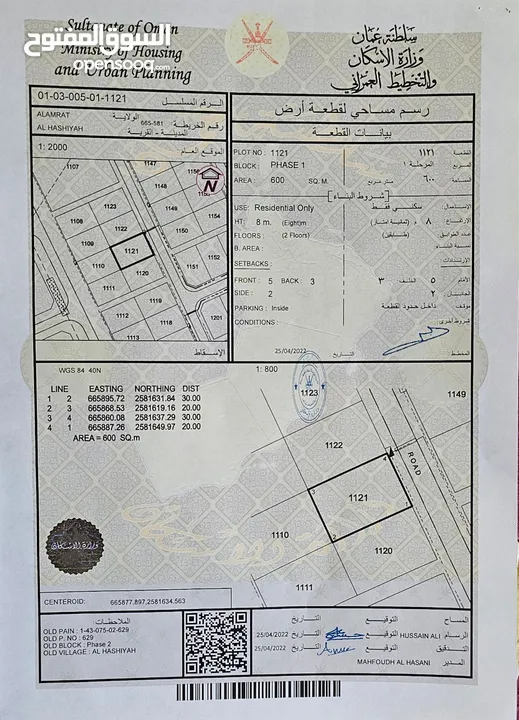 السوق المفتوح
opensooq.com
Sultanate of Oman
Ministry of Housing
and Urban Planning
سلطنة عمان
وزارة الإسكان
والتخطيط العمراني
01-03-005-01-1121
الرقم المسلسل
ALAMRAT
الولاية
665-581
رقم الخريطة
AL HASHIYAH
المدينة - القرية
1: 2000
الموقع العام
رسم مساحي لقطعة أرض
بيانات القطعة
PLOT NO : 1121
١١٢١
القطعة
BLOCK: PHASE 1
المرحلة ١
المربع
AREA : 600 SQ. M
٦٠٠ ستر مربع
المساحة
شروط البناء
USE: Residential Only
سكني فقط
الإستعمال
HT: 8 m. (Eight)m
٨ م (ثمانية امتار)
الإرتفاع
FLOORS : (2 Floors)
(طابقين)
عدد الطوابق
B. AREA :
نسبة البناء
SETBACKS:
الإرتدادات
FRONT : 5 BACK : 3
٣ الخلف ٥ الأمام
SIDE : 2
٢ الجانبان
PARKING : Inside
داخل حدود القطعة
موقف
CONDITIONS :
شروط اخرى
25/04/2022
التاريخ
المخطط
1156
N
1147
1148
1123
1108
1122
1150
1109
1121
1151
1110
1120
1152
1111
1119
1112
1118
1113
الإسقاط
WGS 84 40N
1: 800
LINE EASTING NORTHING DIST
1 2 665895.72 2581631.84 30.00
2 3 665868.53 2581619.16 20.00
3 4 665860.08 2581637.29 30.00
4 1 665887.26 2581649.97 20.00
AREA = 600 SQ.m
1123
1149
1122
ROAD
4
3
1121
1110
2
1120
1111
وزارة الإسكان
CENTEROID: 665877.897,2581634.563
الملاحظات
OLD PAIN : 1-43-075-02-629
OLD P. NO : 629
OLD BLOCK : Phase 2
OLD VILLAGE : AL HASHIYAH
التاريخ
التوقيع
المساح
25/04/2022
التاريخ
التوقيع
HUSSAIN ALI
الرسام
25/04/2022
التاريخ
التوقيع
التدقيق
MAHFOUDH AL HASANI
المدير